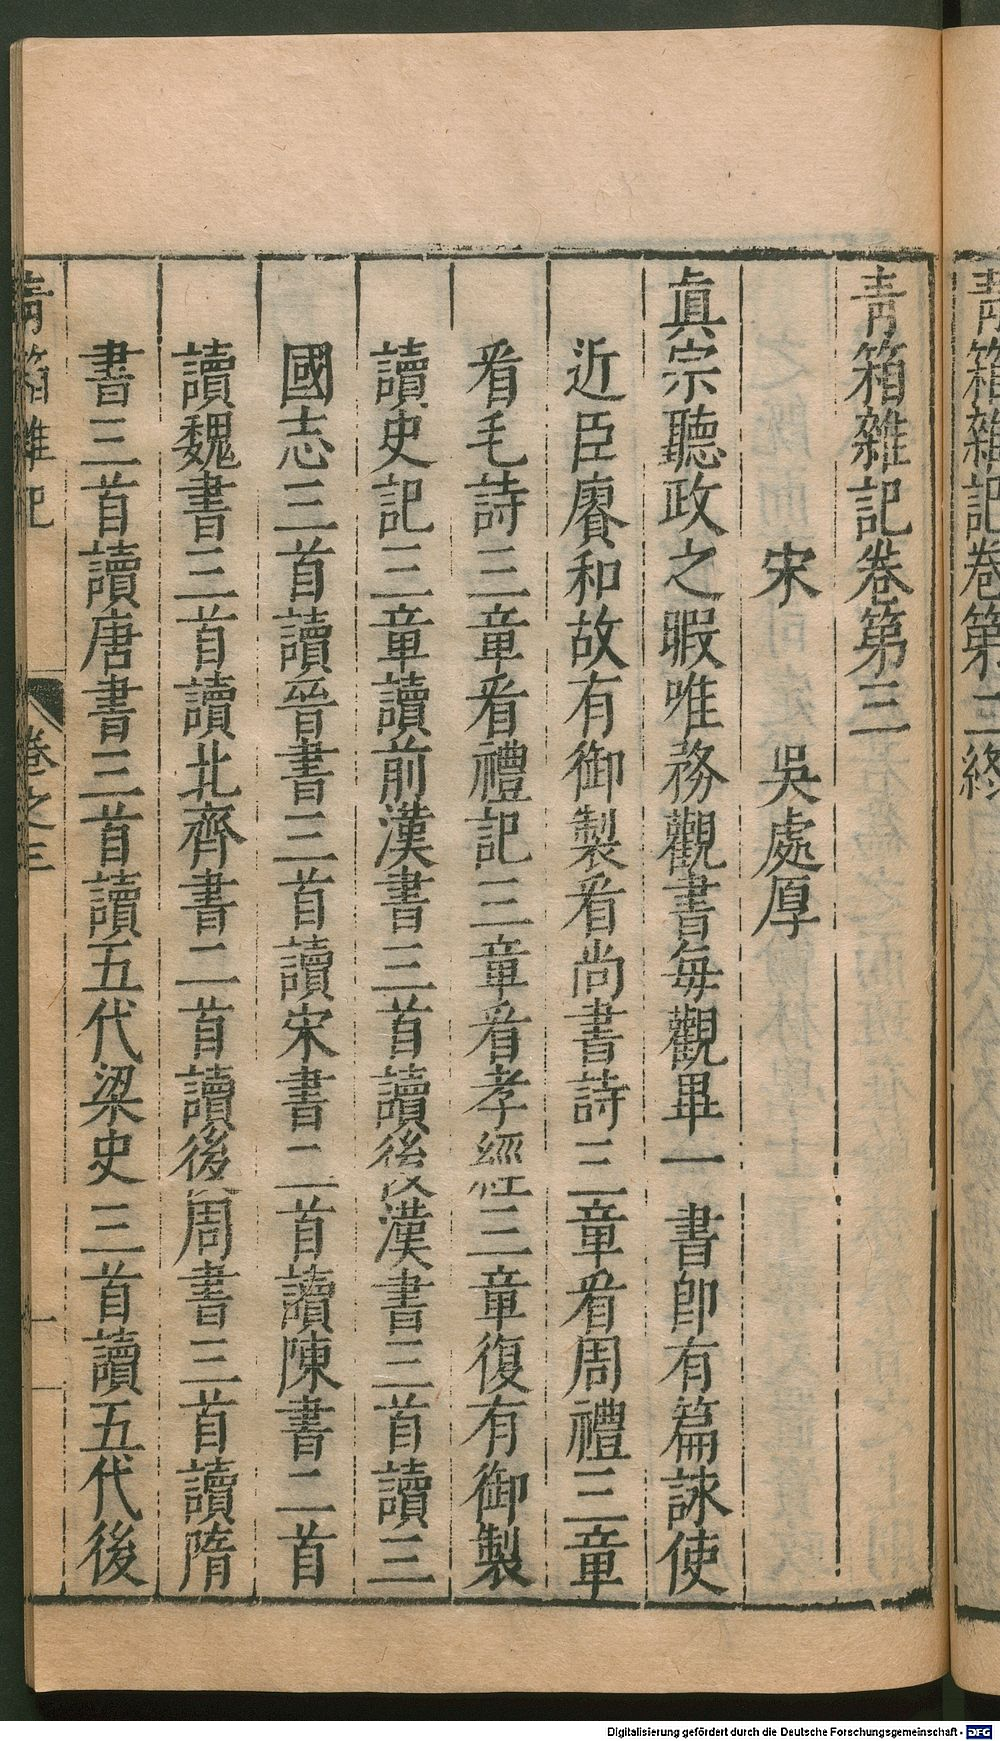 青箱雜記卷第三終
青箱雜記卷第三
宋 吳處厚
眞宗聽政之暇唯務觀書每觀畢一書卽有篇詠使
近臣賡和故有御製看尚書詩三章看周禮三章
看毛詩三章看禮記三章看孝經三章復有御製
讀史記三章讀前漢書三首讀後漢書三首讀三
國志三首讀晉書三首讀宋書二首讀陳書二首
讀魏書三首讀北齊書二首讀後周書三首讀隋
書三首讀唐書三首讀五代梁史三首讀五代後
青箱雜記 卷之三 一
Digitalisierung gefördert durch die Deutsche Forschungsgemeinschaft - DFG